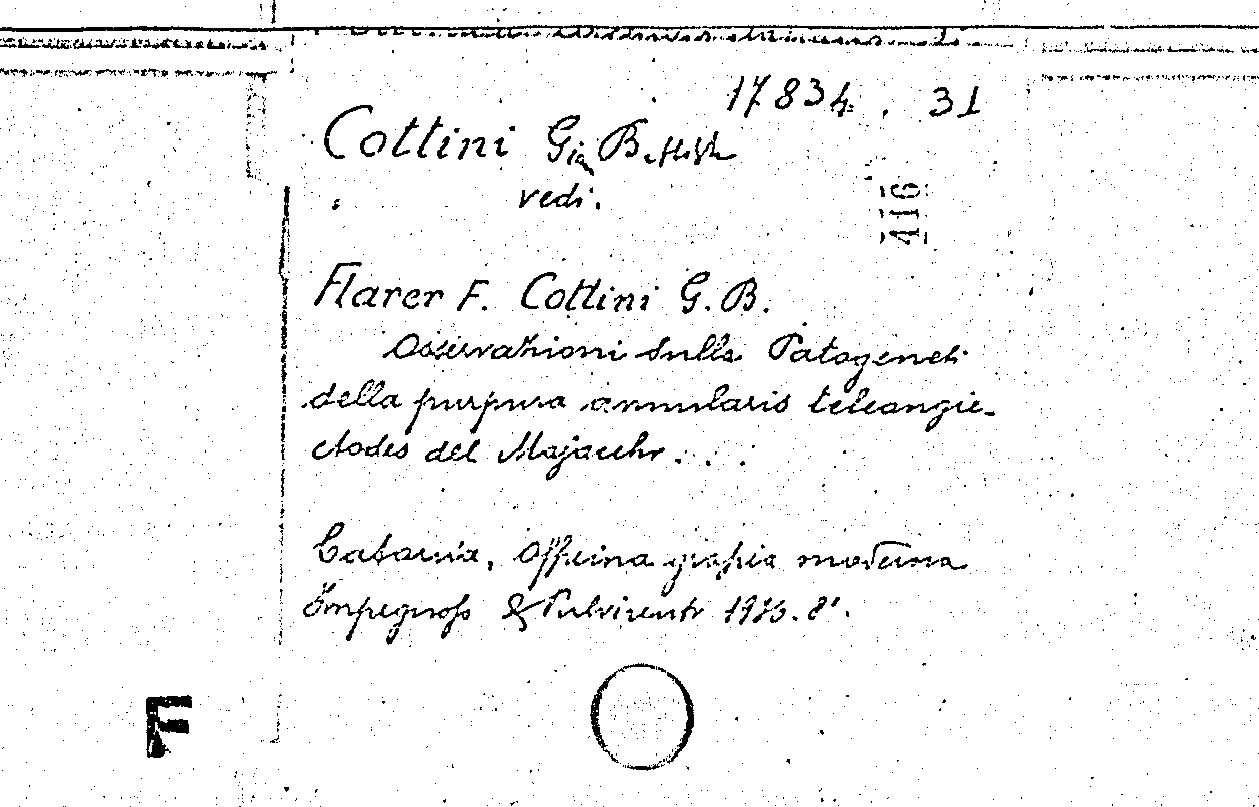 17834 . 31
Cottini Gia Battista
vedi.
A16
Flarer F. Cottini G.B.
Osservazioni sulla Patogenesi
della purpura annularis teleangie-
ctodes del Majacchi . . .
Catania, Officina grafica moderna
& Pulvirenti
F